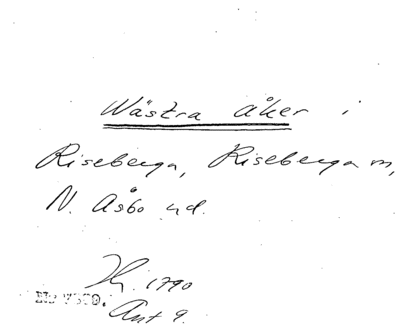 Wästra åker i
Riseberga, Riseberga m,
N. Åsbo hd.
1790
Ant 9.